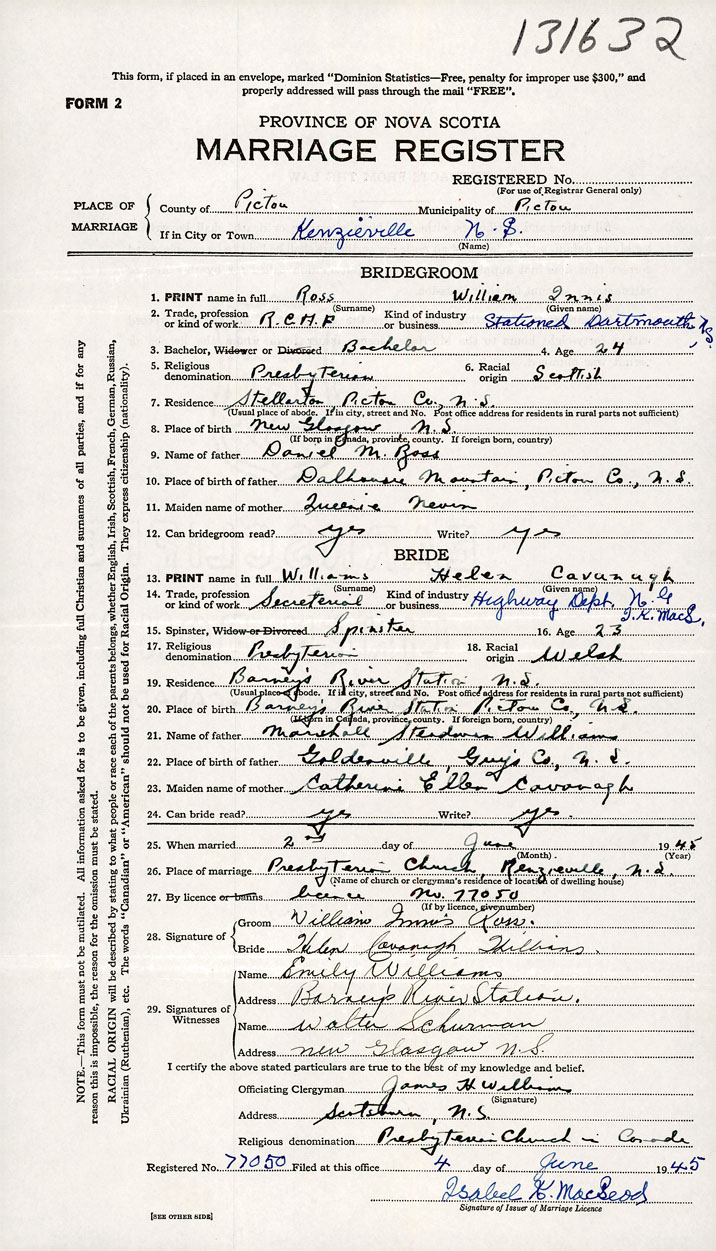 131632
This form, if placed in an envelope, marked “Dominion Statistics—Free, penalty for improper use $300,” and
properly addressed will pass through the mail “FREE”.
FORM 2
PROVINCE OF NOVA SCOTIA
MARRIAGE REGISTER
REGISTERED No.
(For use of Registrar General only)
PLACE OF MARRIAGE
County of Pictou Municipality of Pictou
If in City or Town Kenzieville N.S.
(Name)
BRIDEGROOM
1. PRINT name in full Ross William Innis
(Surname) (Given name)
2. Trade, profession or kind of work R.C.M.P Kind of industry or business Stationed Dartmouth, N.S.
3. Bachelor, Widower or Divorced Bachelor 4. Age 24
5. Religious denomination Presbyterian 6. Racial origin Scottish
7. Residence Stellarton, Pictou Co., N.S.
(Usual place of abode. If in city, street and No. Post office address for residents in rural parts not sufficient)
8. Place of birth New Glasgow N.S.
(If born in Canada, province, county. If foreign born, country)
9. Name of father Daniel M. Ross
10. Place of birth of father Dalhousie Mountain, Pictou Co., N.S.
11. Maiden name of mother Queenie Nevin
12. Can bridegroom read? yes Write? yes
BRIDE
13. PRINT name in full Williams Helen Cavanagh
(Surname) (Given name)
14. Trade, profession or kind of work Secreterial Kind of industry or business Highway Dept. N.G
I.K. MacL.
15. Spinster, Widow or Divorced Spinster 16. Age 23
17. Religious denomination Presbyterian 18. Racial origin Welsh
19. Residence Barney's River Station, N.S.
(Usual place of abode. If in city, street and No. Post office address for residents in rural parts not sufficient)
20. Place of birth Barney's River Station Pictou Co., N.S.
(If born in Canada, province, county. If foreign born, country)
21. Name of father Marshall Williams
22. Place of birth of father Goldenville, Guy's Co., N.S.
23. Maiden name of mother Catherine Ellen Cavanagh
24. Can bride read? yes Write? yes.
25. When married 2nd day of June 1945
(Month) (Year)
26. Place of marriage Presbyterian Church, Kenzieville, N.S.
(Name of church or clergyman's residence or location of dwelling house)
27. By licence or banns licence No. 77050
(If by licence, give number)
28. Signature of
Groom William Innis Ross.
Bride Helen Cavanagh Williams.
29. Signatures of Witnesses
Name Emily Williams
Address Barney's River Station.
Name Walter Schurman
Address New Glasgow N.S.
I certify the above stated particulars are true to the best of my knowledge and belief.
Officiating Clergyman James H Williams
(Signature)
Address Scotsburn, N.S.
Religious denomination Presbyterian Church in Canada
Registered No. 77050 Filed at this office 4 day of June 1945
Isabel K. MacLeod
Signature of Issuer of Marriage Licence
[SEE OTHER SIDE]
NOTE.—This form must not be mutilated. All information asked for is to be given, including full Christian and surnames of all parties, and if for any
reason this is impossible, the reason for the omission must be stated.
RACIAL ORIGIN will be described by stating to what people or race each of the parents belongs, whether English, Irish, Scottish, French, German, Russian,
Ukrainian (Ruthenian), etc. The words “Canadian” or “American” should not be used for Racial Origin. They express citizenship (nationality).